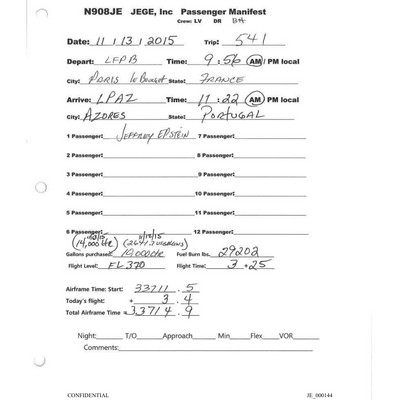 N908JE JEGE, Inc Passenger Manifest
Crew: LV DR BH
Date: 11 / 13 / 2015 Trip: 541
Depart: LFPB Time: 9:56 AM / PM local
City: PARIS le Bourget State: FRANCE
Arrive: LPAZ Time: 11:22 AM PM local
City: AZORES State: PORTUGAL
1 Passenger: JEFFREY EPSTEIN 7 Passenger:
2 Passenger: 8 Passenger:
3 Passenger: 9 Passenger:
4 Passenger: 10 Passenger:
5 Passenger: 11 Passenger:
6 Passenger: 12 Passenger:
11/13/15
Gallons purchased: Fuel Burn lbs. 29202
Flight Level: FL370 Flight Time: 3 +25
Airframe Time: Start: 33711 . 5
Today's flight: + 3 . 4
Total Airframe Time = 33714 . 9
Night: T/O Approach Min Flex VOR
Comments:
CONFIDENTIAL JE_000144